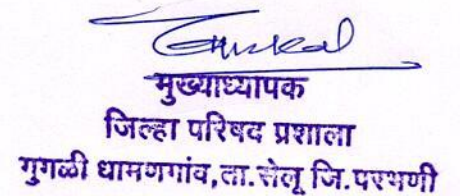 मुख्याध्यापक
जिल्हा परिषद प्रशाला
गुगळी धामणगांव,ता.सेलू जि.परभणी